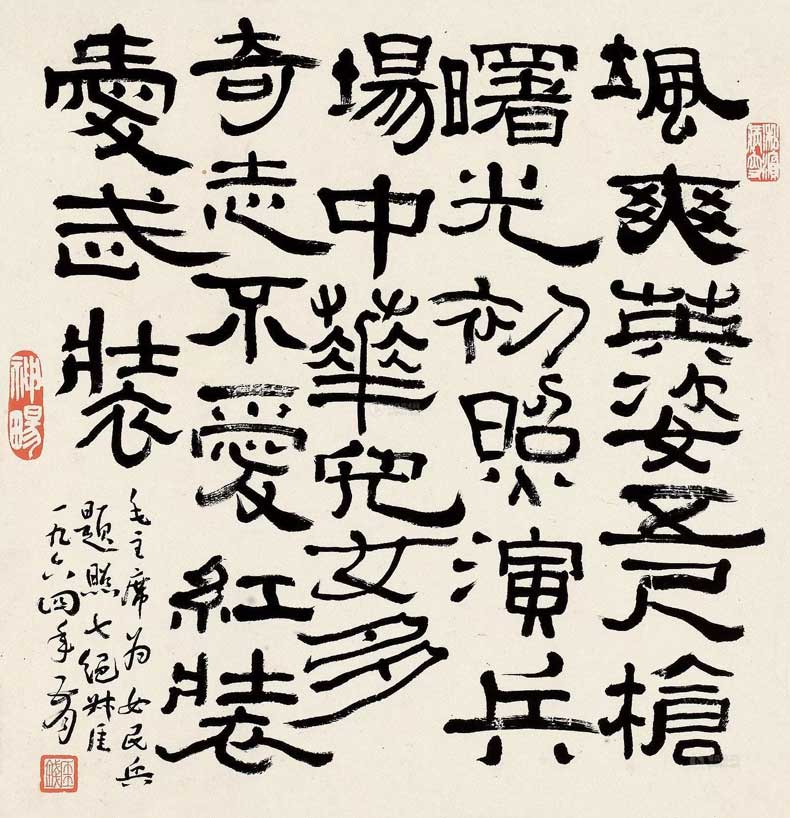 颯爽英姿五尺槍
曙光初照演兵
場中華兒女多
奇志不愛紅裝
愛武裝
毛主席为女民兵
題照七絕叔厓
一九六四年
神暢